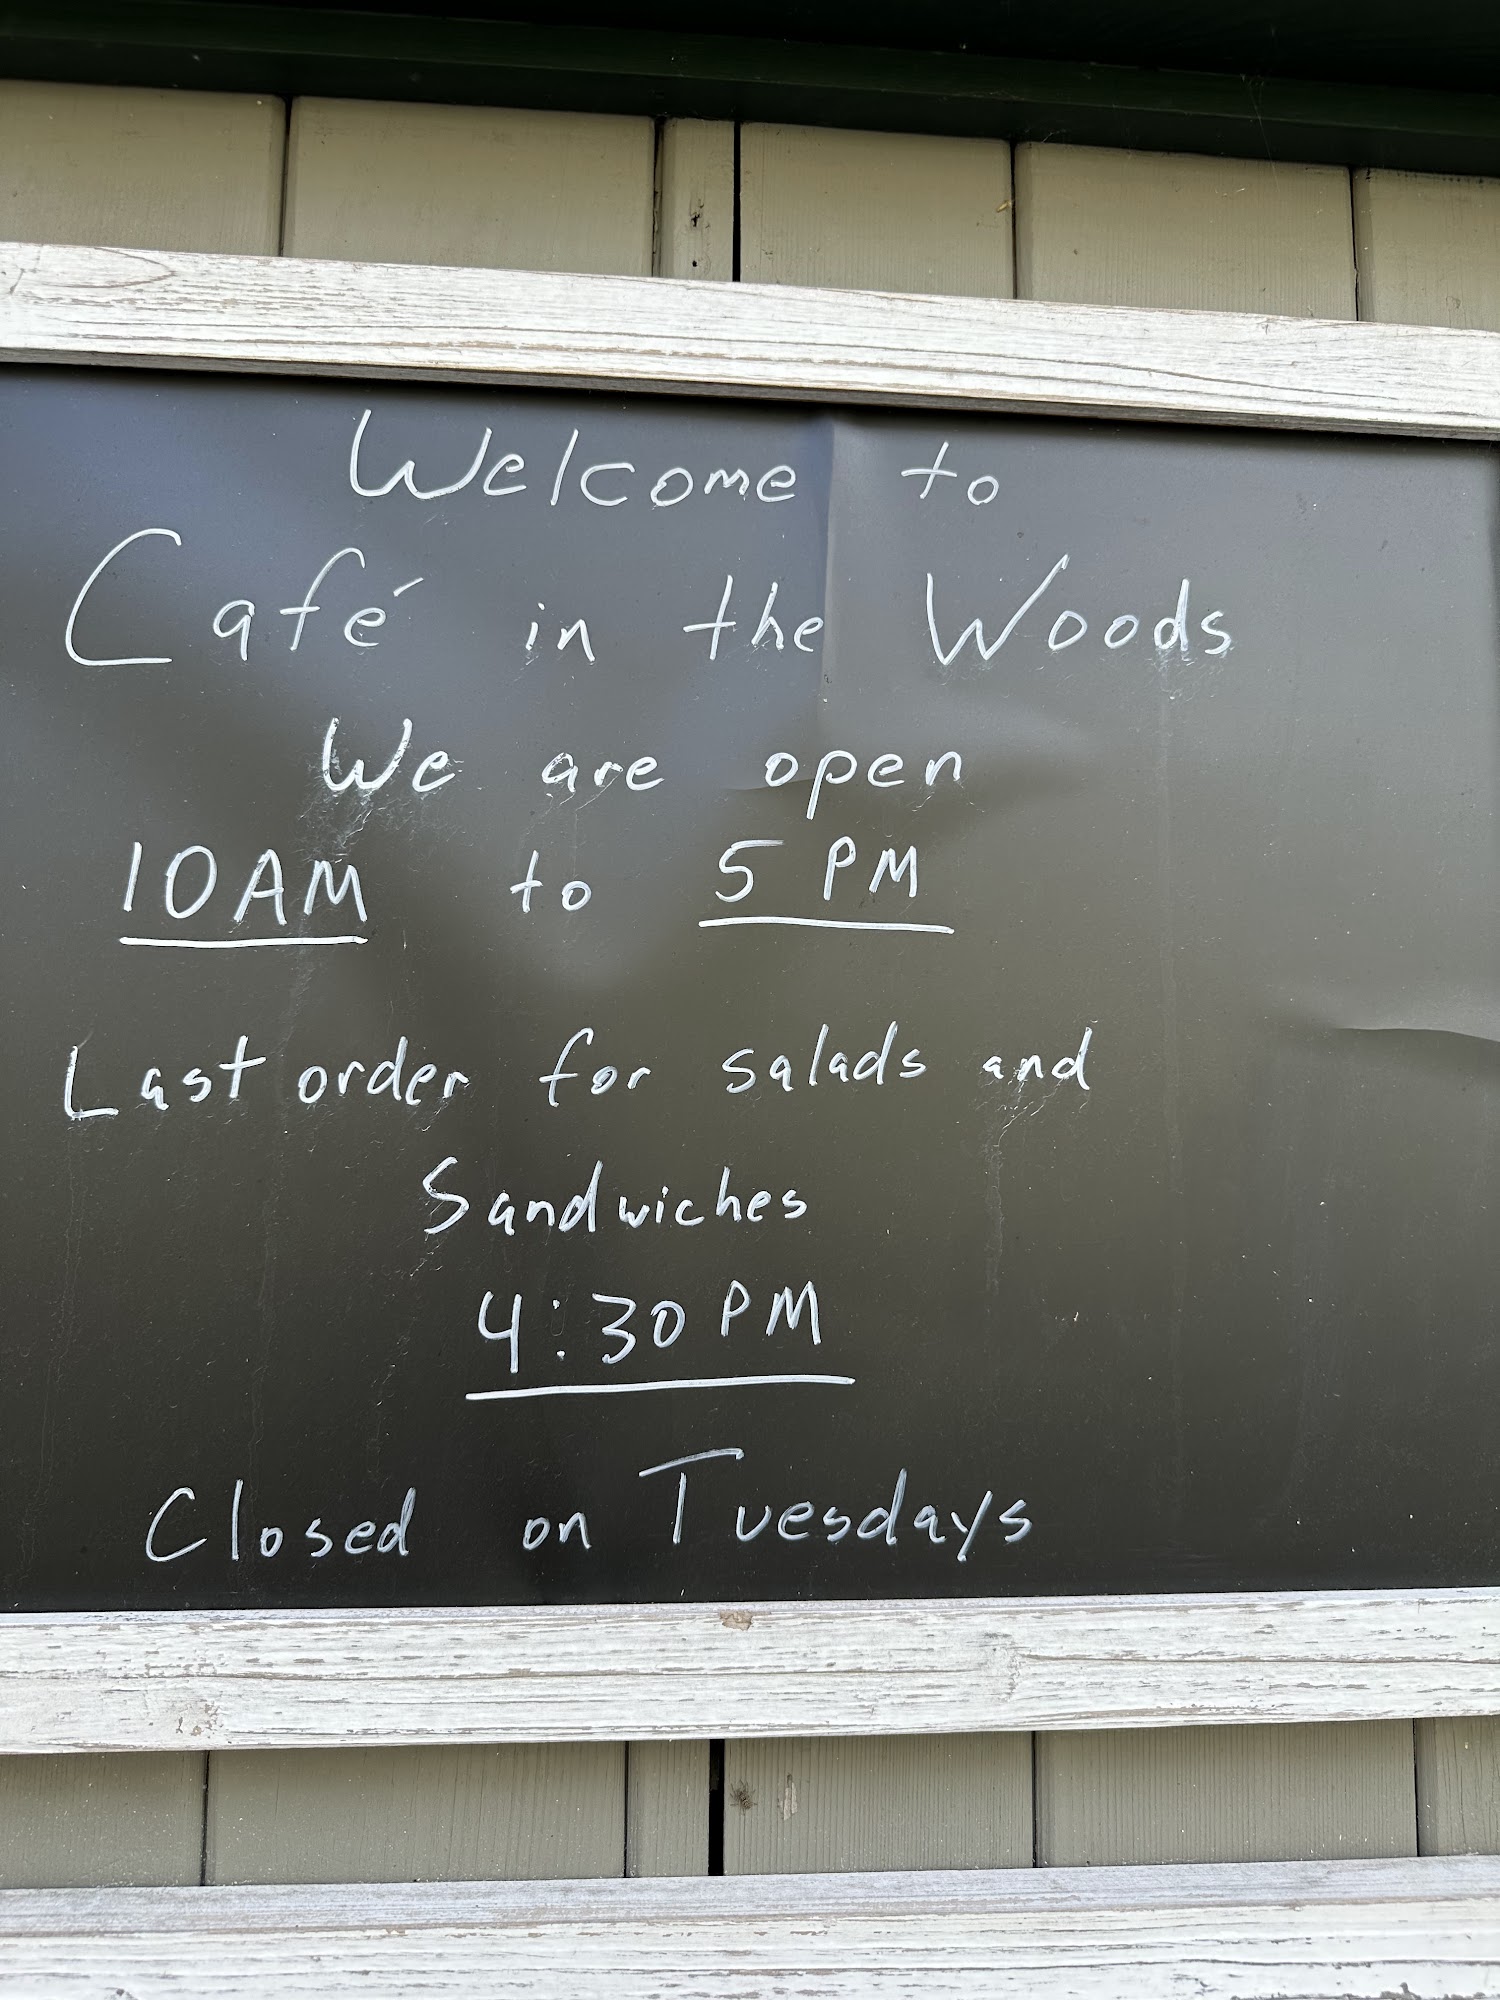 Welcome to
Café in the Woods
We are open
10AM to 5 PM
Last order for salads and
Sandwiches
4:30 PM
Closed on Tuesdays